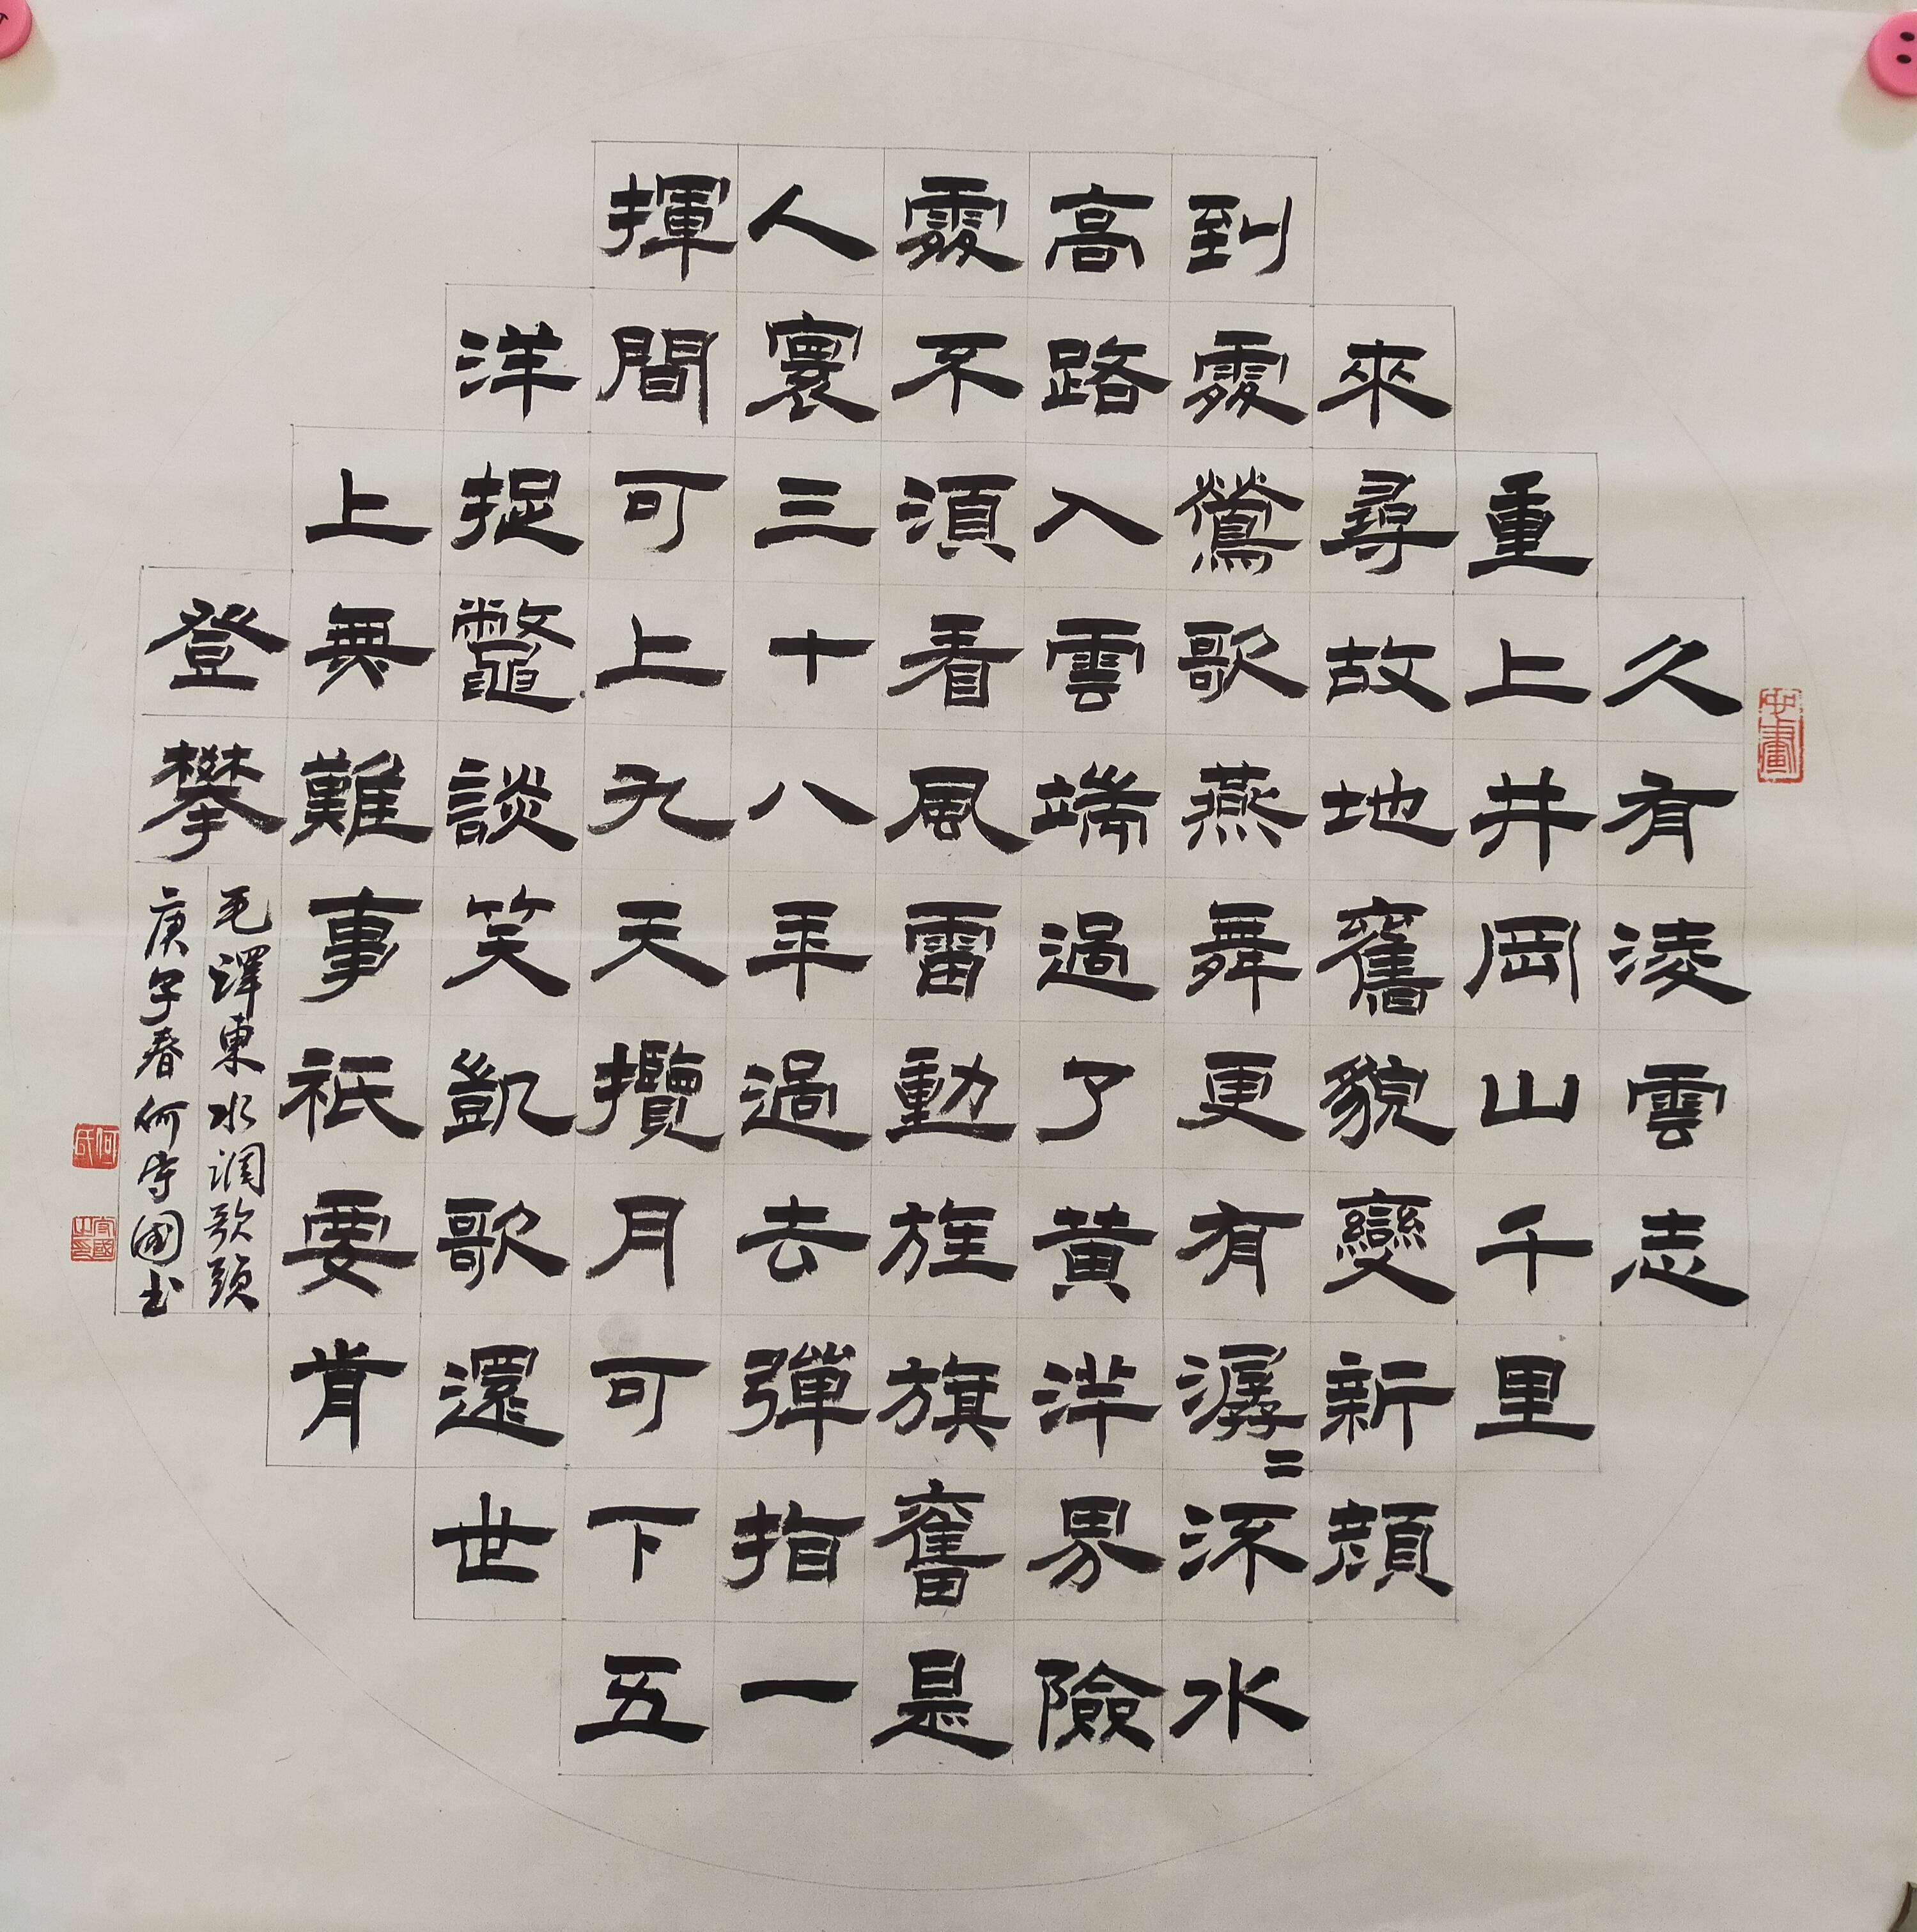 久有淩雲志
重上井岡山千里
來尋故地舊貌變新顏
到處鶯歌燕舞更有潺二流水
高路入雲端過了黄洋界險
處不須看風雷動旌旗奮是
人寰三十八年過去彈指一
揮間可上九天攬月可下五
洋捉鱉談笑凱歌還世
上無難事祇要肯
登攀
毛澤東水調歌頭
庚子春何守國书
如畫
何氏